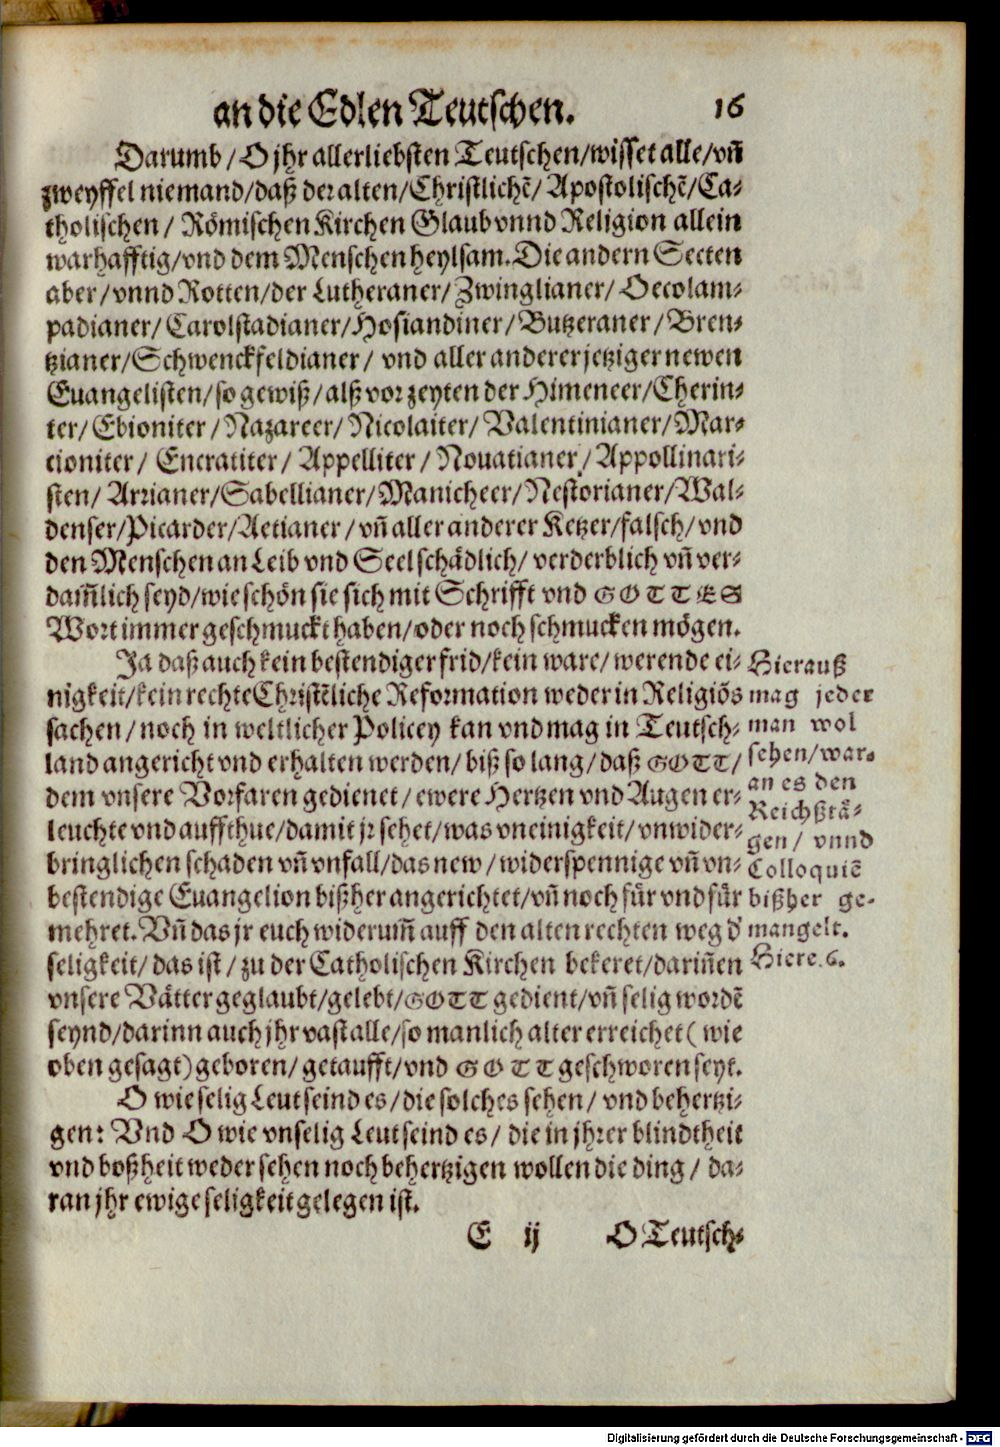 an die Edlen Teutschen. 16
Darumb / O jhr allerliebsten Teutschen/wisset alle/vñ
zweyffel niemand/daß der alten/Christlichẽ/ Apostolischẽ/Ca-
tholischen / Römischen Kirchen Glaub vnnd Religion allein
warhafftig/vnd dem Menschen heylsam. Die andern Secten
aber / vnnd Rotten/der Lutheraner/ Zwinglianer/ Oecolam-
padianer/ Carolstadianer/Hosiandiner/Butzeraner / Bren-
tzianer/Schwenckfeldianer / vnd aller anderer jetziger newen
Euangelisten/so gewiß/alß vor zeyten der Himeneer/Cherin-
ter/ Ebioniter / Nazareer/ Nicolaiter/ Valentinianer/Mar-
cioniter/ Encratiter/ Appelliter / Nouatianer/ Appollinari-
sten/ Arrianer/Sabellianer/Manicheer/Nestorianer/Wal-
denser/Picarder/Aetianer / vñ aller anderer Ketzer/falsch/vnd
den Menschen an Leib vnd Seel schädlich/ verderblich vñ ver-
dam̃lich seyd/wie schön sie sich mit Schrifft vnd GOTTES
Wort immer geschmuckt haben/oder noch schmucken mögen.
Ja daß auch kein bestendiger frid/kein ware/ werende ei-
nigkeit/kein rechte Christẽliche Reformation weder in Religiõs
sachen / noch in weltlicher Policey kan vnd mag in Teutsch-
land angericht vnd erhalten werden/ biß so lang/ daß GOTT/
dem vnsere Vorfaren gedienet / ewere Hertzen vnd Augen er-
leuchte vnd auffthue/damit jr sehet/was vneinigkeit/vnwider-
bringlichen schaden vñ vnfall/das new / widerspennige vñ vn-
bestendige Euangelion bißher angerichtet/vñ noch für vnd für
mehret. Vñ das jr euch widerum̃ auff den alten rechten weg d'
seligkeit/ das ist / zu der Catholischen Kirchen bekeret/dariñen
vnsere Vätter geglaubt/gelebt/GOTT gedient/vñ selig wordẽ
seynd/darinn auch jhr vast alle/so manlich alter erreichet ( wie
oben gesagt) geboren/ getaufft/vnd GOTT geschworen seyt.
O wie selig Leut seind es / die solches sehen / vnd behertzi-
gen: Vnd O wie vnselig Leut seind es / die in jhrer blindtheit
vnd boßheit weder sehen noch behertzigen wollen die ding / da-
ran jhr ewige seligkeit gelegen ist.
E ij O Teutsch-
Hierauß
mag jeder
man wol
sehen/war-
an es den
Reichßtä-
gen / vnnd
Colloquiẽ
bißher ge-
mangelt.
Hiere. 6.
Digitalisierung gefördert durch die Deutsche Forschungsgemeinschaft - DFG